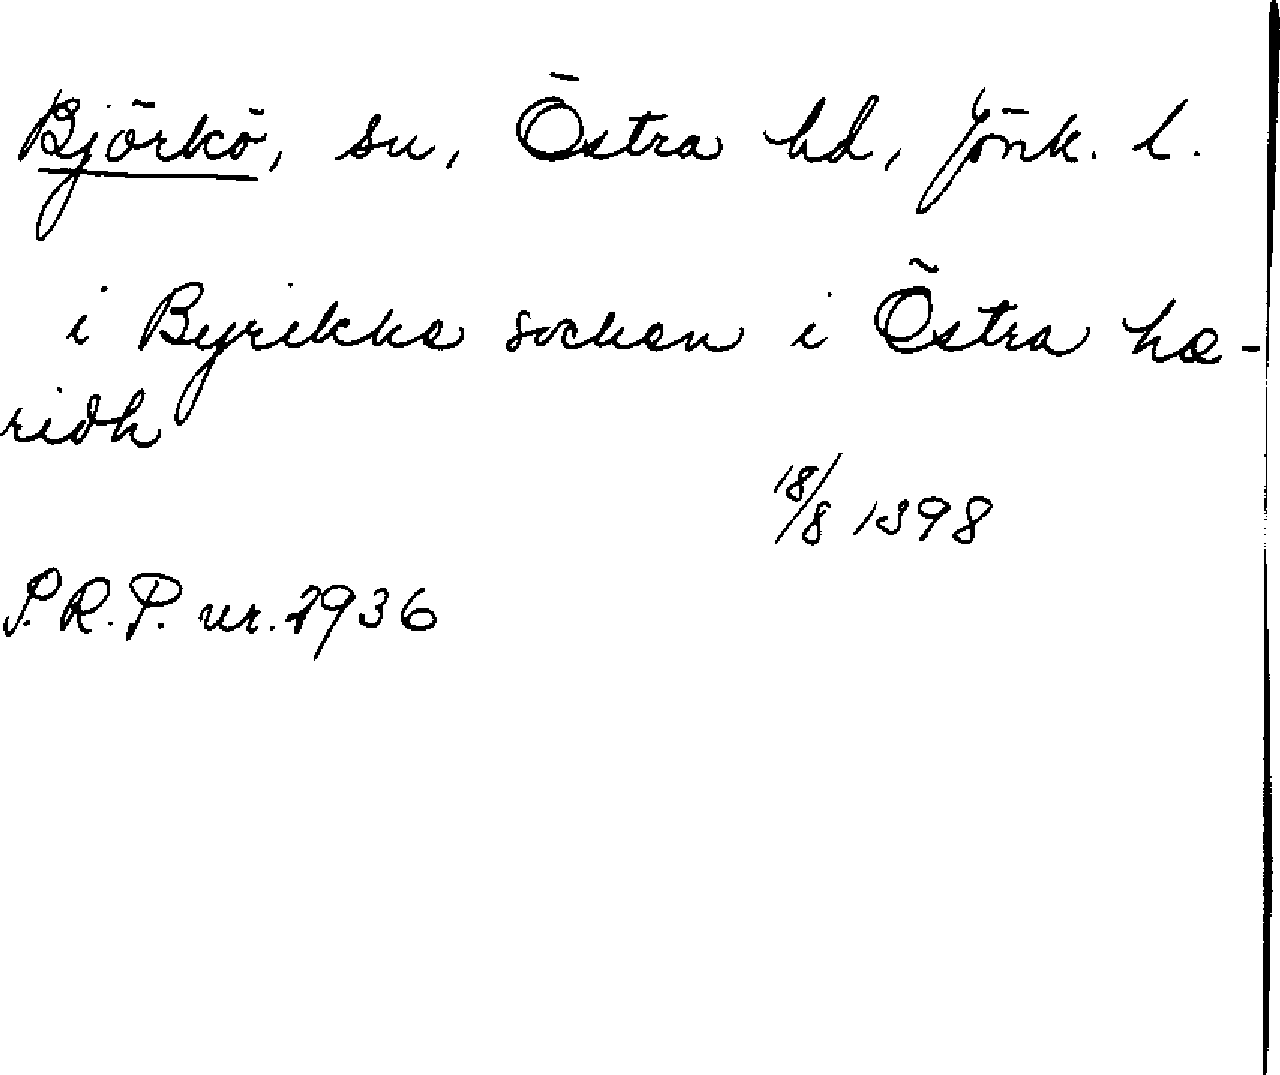 Björkö, sn, Östra hd, Jönk. l.
i Byrikke socken i Östra hæ-
ridh
18/8 1398
S.R.P. nr. 2936